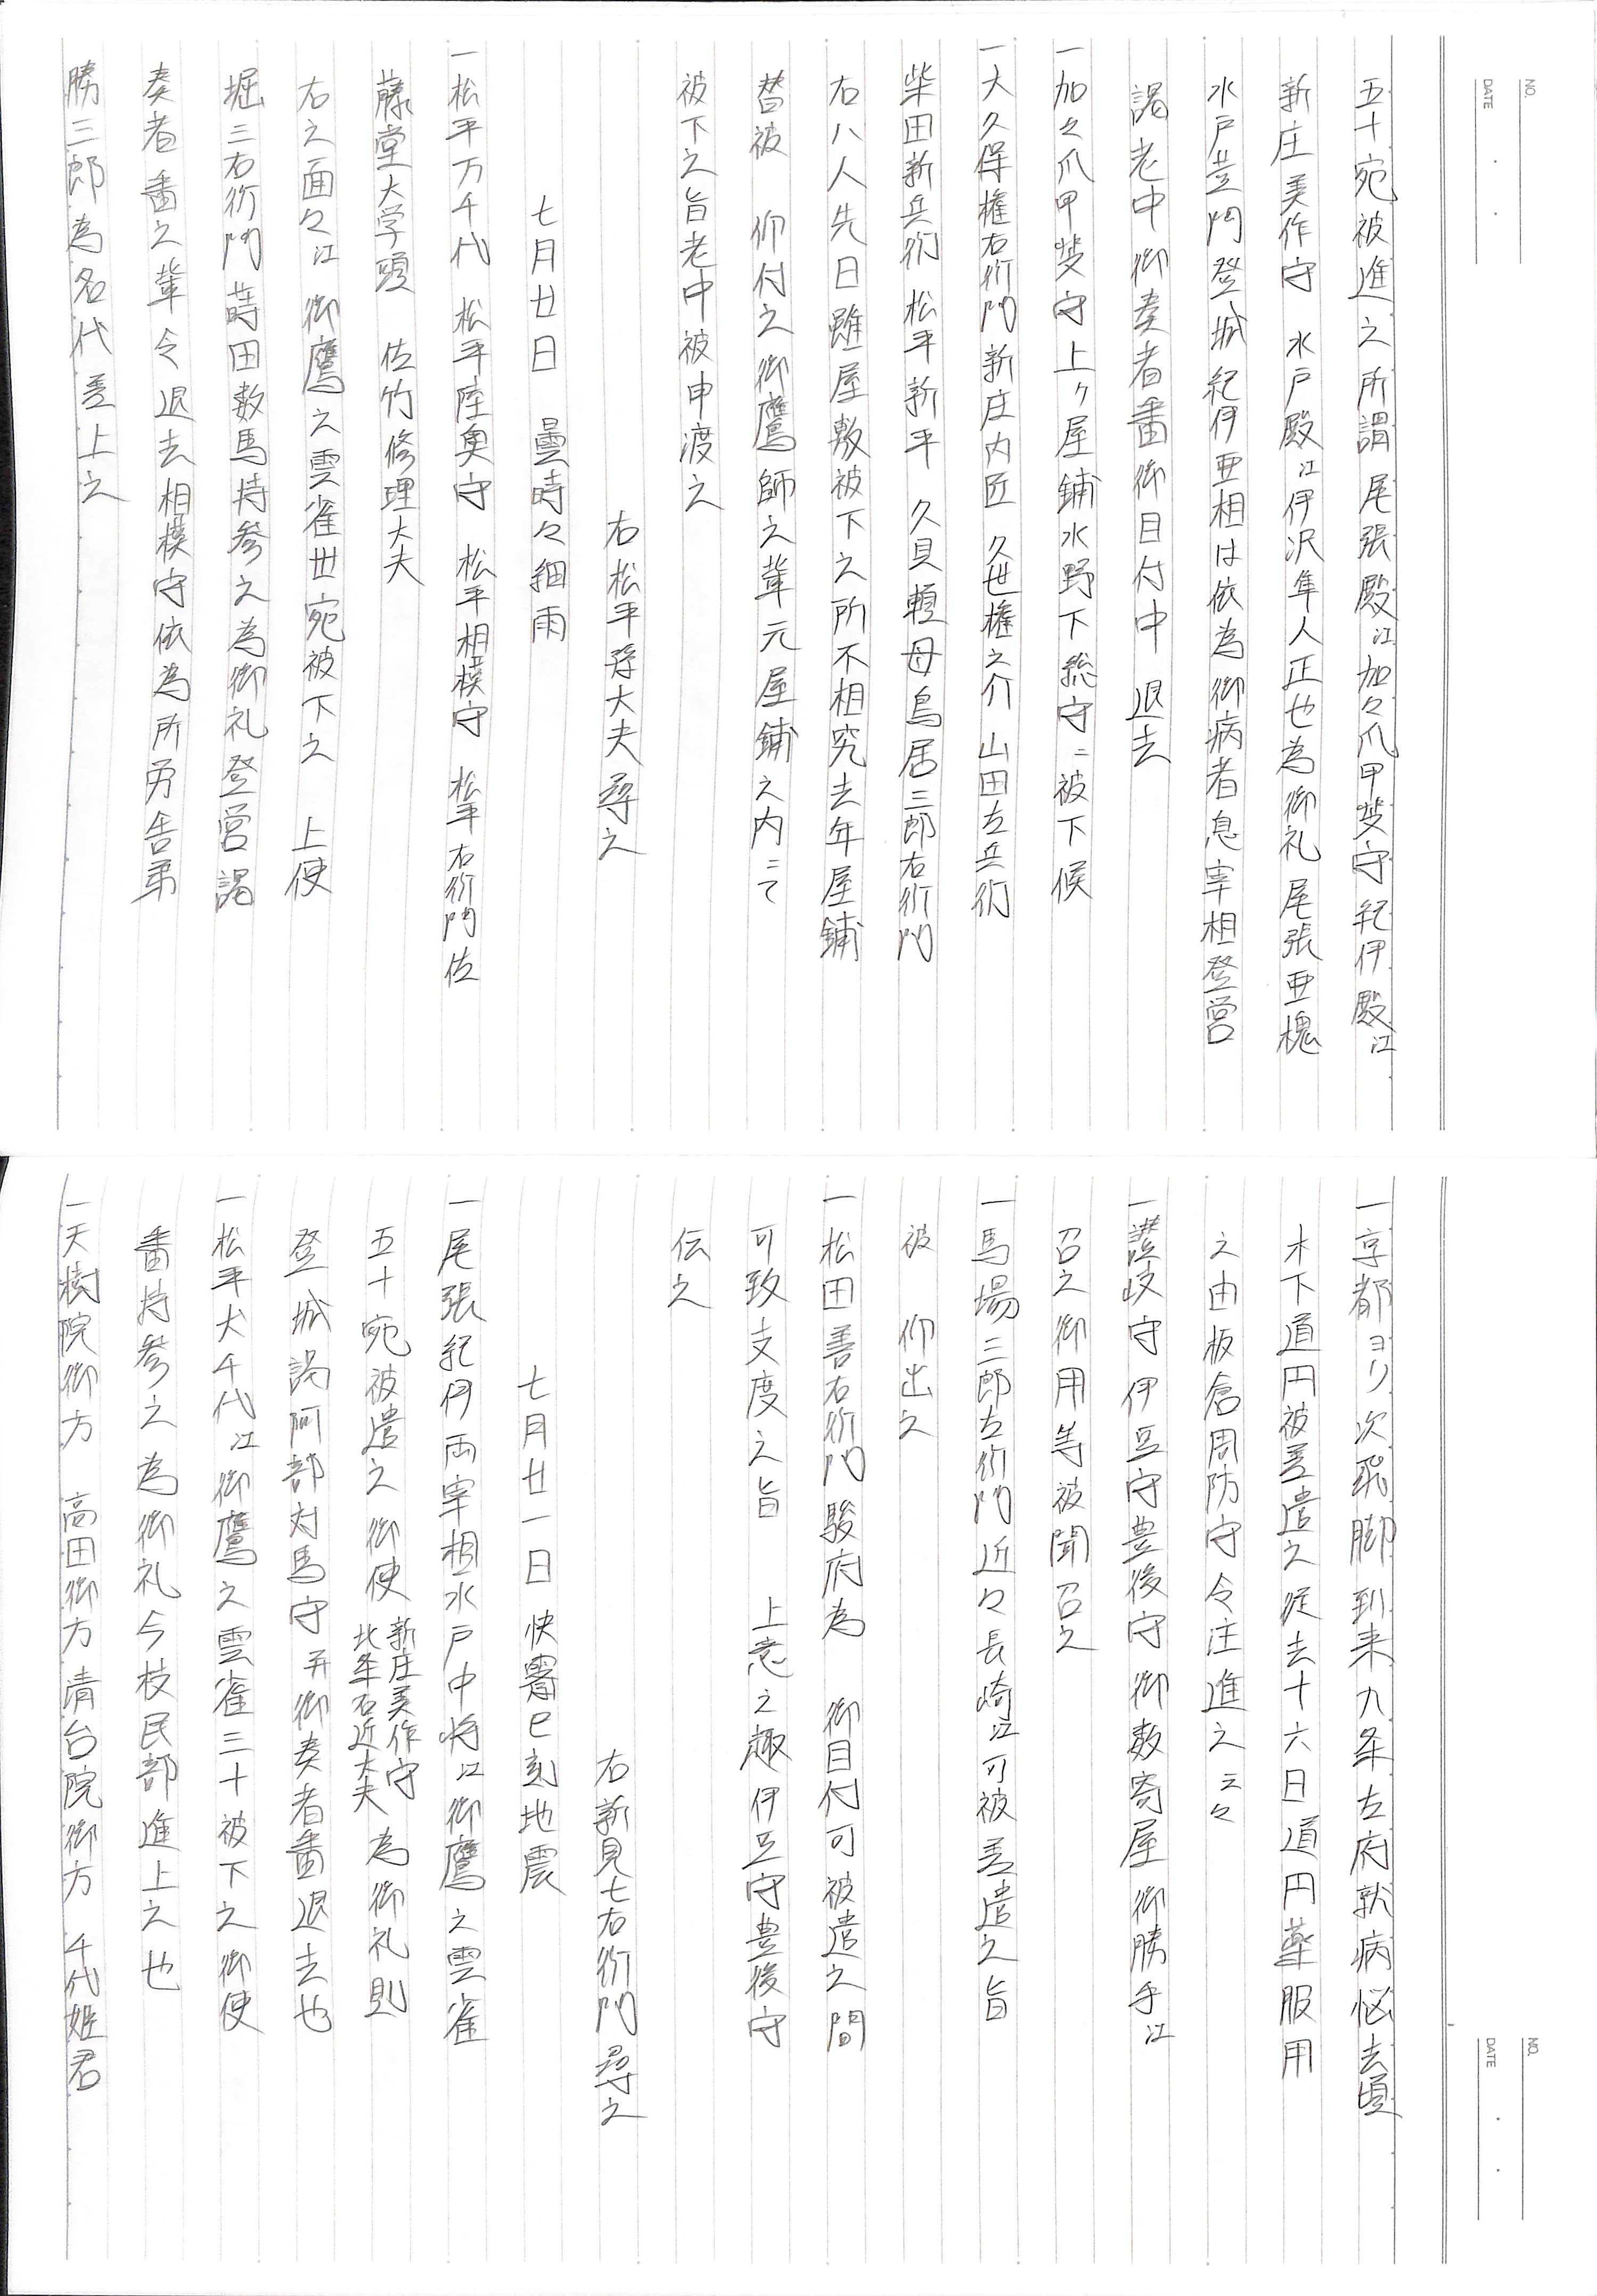 NO.
DATE
五十宛被進之所謂尾張殿江加々爪甲斐守紀伊殿江
新庄美作守 水戸殿江伊沢隼人正也為御礼尾張亜槐
水戸黄門登城紀伊亜相は依為御病者息宰相登営
謁老中御奏者番御目付中 退去
一加々爪甲斐守上ヶ屋鋪水野下総守ニ被下候
一大久保権右衛門新庄内匠 久世権之介 山田左兵衛
柴田新兵衛 松平新平 久貝頼母鳥居三郎右衛門
右八人先日雖屋敷被下之所不相究去年屋鋪
替被 仰付之御鷹師之輩元屋鋪之内ニて
被下之旨老中被申渡之
右松平孫大夫尋之
七月廿日 曇時々細雨
一松平万千代 松平陸奥守 松平相模守 松平右衛門佐
藤堂大学頭 佐竹修理大夫
右之面々江 御鷹之雲雀丗宛被下之 上使
堀三右衛門蒔田数馬持参之為御礼登営謁
奏者番之輩令退去相模守依為所労舎弟
勝三郎為名代差上之
NO.
DATE
一京都ヨリ次飛脚到来九条左府就病悩去頃
木下道円被差遣之従去十六日道円薬服用
之由板倉周防守令注進之云々
一讃岐守伊豆守豊後守御数寄屋御勝手江
召之御用等被聞召之
一馬場三郎左衛門近々長崎江可被差遣之旨
被 仰出之
一松田善右衛門駿府為 御目付可被遣之間
可致支度之旨 上意之趣伊豆守豊後守
伝之
右新見七右衛門尋之
七月廿一日 快霽巳刻地震
一尾張紀伊両宰相水戸中将江御鷹之雲雀
五十宛被遣之御使 新庄美作守 北条右近大夫 為御礼則
登城謁阿部対馬守并御奏者番退去也
一松平犬千代江御鷹之雲雀三十被下之御使
番持参之為御礼今枝民部進上之也
一天樹院御方 高田御方清台院御方 千代姫君